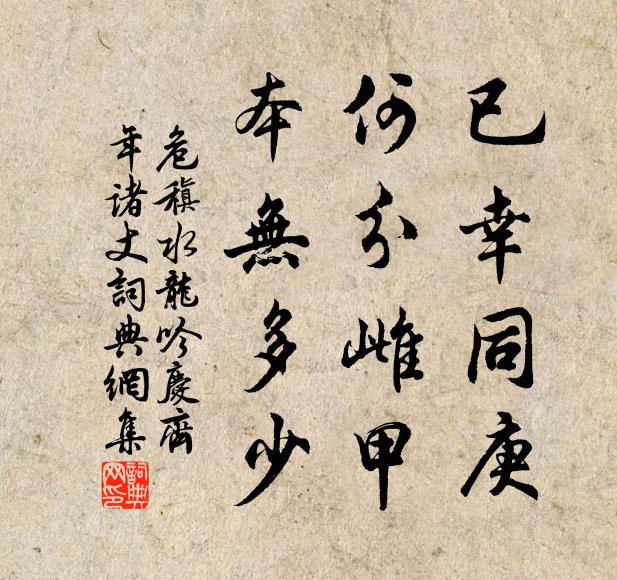 已幸同庚
何分雌甲
本無多少
危稹水龍吟慶齊
年諸丈詞典網集
詞典
网印